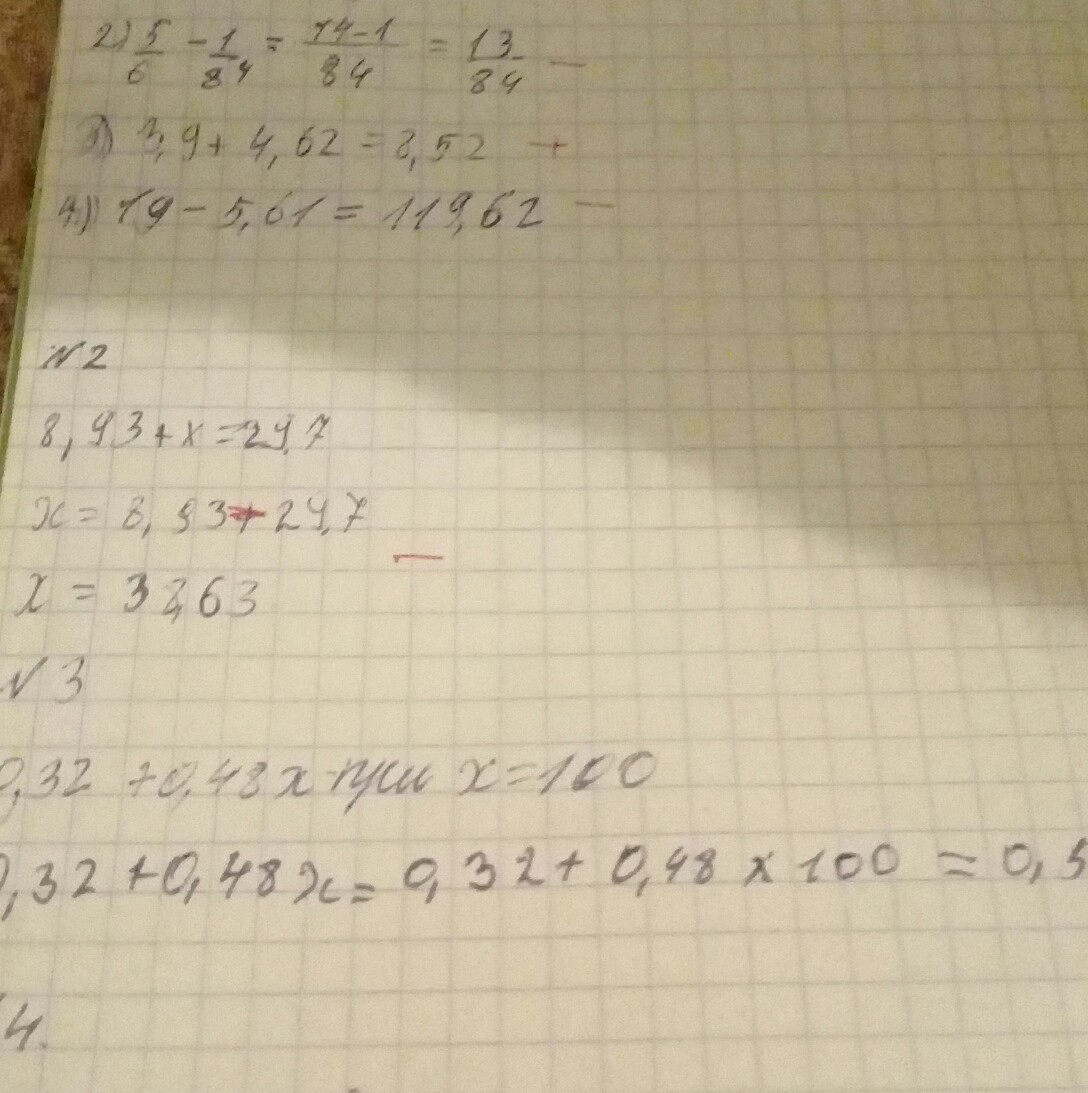 2) 5/6 - 1/84 = 14-1/84 = 13/84 —
3) 3,9 + 4,62 = 8,52 +
4) 19 - 5,61 = 119,62 —
N2
8,93 + x = 29,7
x = 8,93 + 29,7
x = 38,63 —
N3
0,32 + 0,48x при x = 100
0,32 + 0,48x = 0,32 + 0,48 x 100 = 0,5
4.